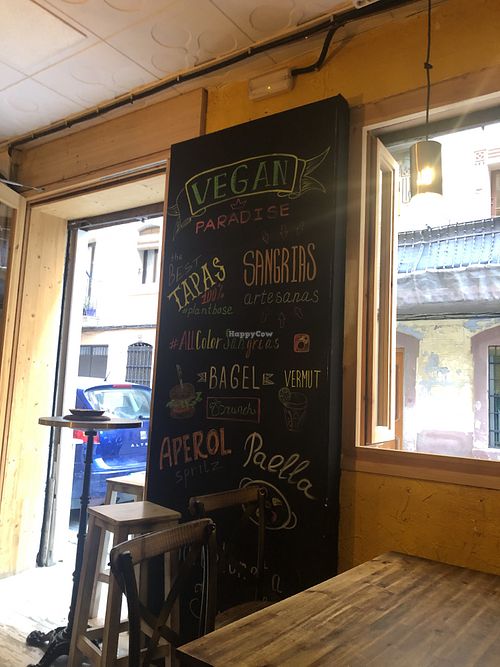 VEGAN
PARADISE
the BEST
TAPAS
100%
#plantbase
SANGRIAS
artesanas
#AllColorSangrias
HappyCow
BAGEL
VERMUT
Brunch
APEROL
spritz
Paella